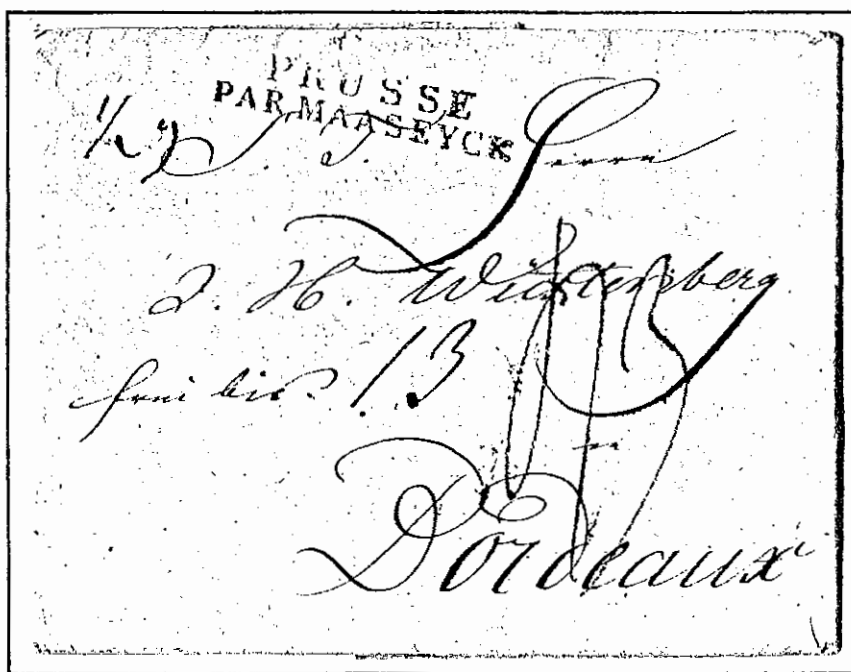 PRUSSE
PAR MAASEYCK
Herrn
J. H. Wüstenberg
frei bis 13
Bordeaux